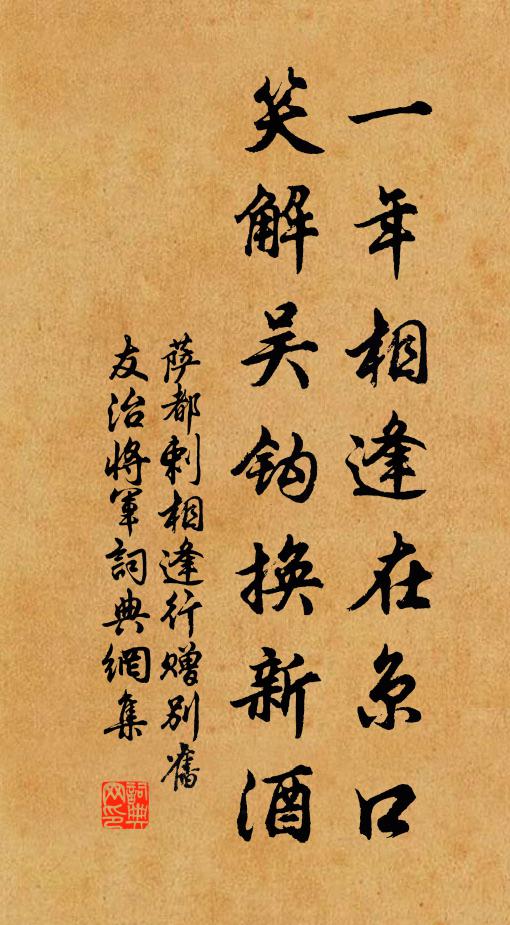 一年相逢在京口
笑解吴钩换新酒
萨都剌相逢行赠别舊
友治将军詞典網集
詞典網印